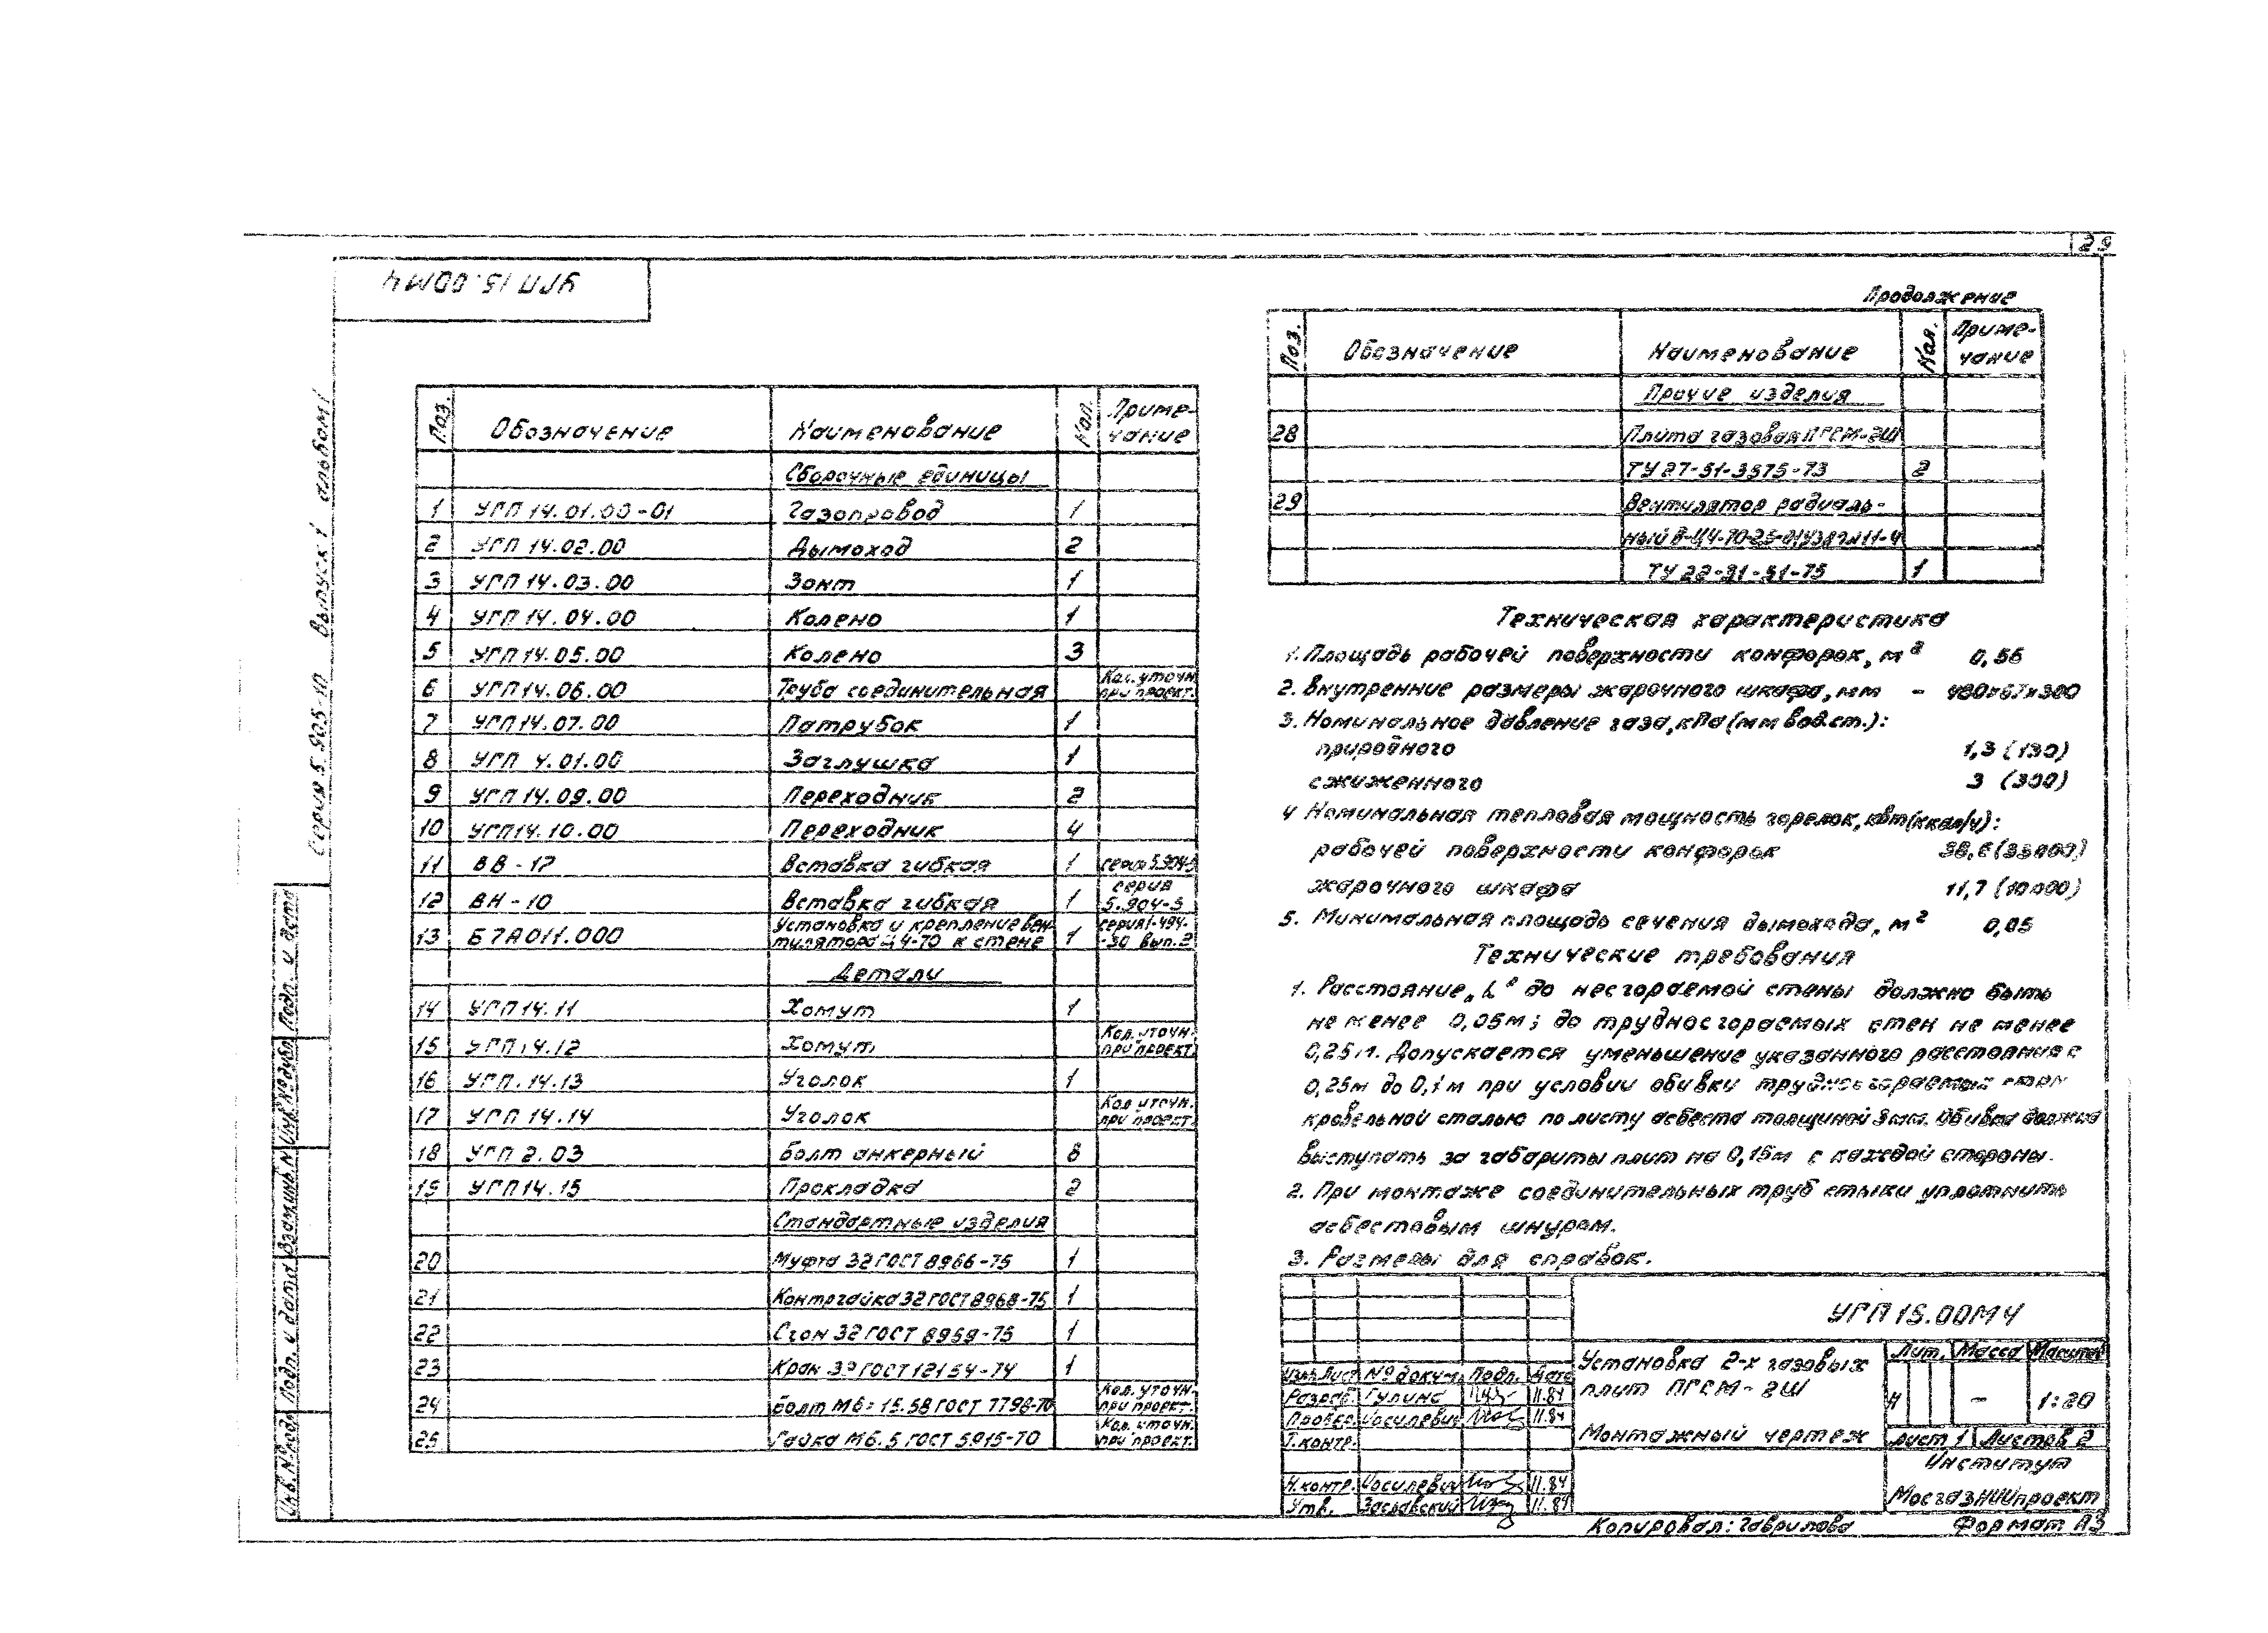 29
УГП 15.00МЧ
Серия 5.905-10 Выпуск 1 альбом 1
Поз. Обозначение Наименование Кол. Приме-
чание
Сборочные единицы
1 УГП 14.01.00-01 Газопровод 1
2 УГП 14.02.00 Дымоход 2
3 УГП 14.03.00 Зонт 1
4 УГП 14.04.00 Колено 1
5 УГП 14.05.00 Колено 3
6 УГП 14.06.00 Труба соединительная Кол. уточн.
при проект.
7 УГП 14.07.00 Патрубок 1
8 УГП 4.01.00 Заглушка 1
9 УГП 14.09.00 Переходник 2
10 УГП 14.10.00 Переходник 4
11 ВВ-12 Вставка гибкая 1 серия 5.904-5
12 ВН-10 Вставка гибкая 1 серия
5.904-5
13 Б7А011.000 Установка и крепление вен-
тилятора Ц4-70 к стене 1 серия 1-494-
-30 вып.2
Детали
14 УГП 14.11 Хомут 1
15 УГП 14.12 Хомут Кол. уточн.
при проект.
16 УГП.14.13 Уголок 1
17 УГП 14.14 Уголок Кол. уточн.
при проект.
18 УГП 2.03 Болт анкерный 8
19 УГП 14.15 Прокладка 2
Стандартные изделия
20 Муфта 32 ГОСТ 8966-75 1
21 Контргайка 32 ГОСТ 8968-75 1
22 Сгон 32 ГОСТ 8969-75 1
23 Кран ГОСТ 12154-74 1
24 Болт М6×15.58 ГОСТ 7798-70 Кол. уточн.
при проект.
25 Гайка М6.5 ГОСТ 5915-70 Кол. уточн.
при проект.
Продолжение
Поз. Обозначение Наименование Кол. Приме-
чание
Прочие изделия
28 Плита газовая ПГСМ-2Ш
ТУ 27-51-3575-73 2
29 Вентилятор радиаль-
ный
ТУ 22-31-51-75 1
Техническая характеристика
1. Площадь рабочей поверхности конфорок, м² 0,56
2. Внутренние размеры жарочного шкафа, мм -
3. Номинальное давление газа, кПа (мм вод.ст.):
природного 1,3 (130)
сжиженного 3 (300)
4 Номинальная тепловая мощность горелок, квт (ккал/ч):
рабочей поверхности конфорок
жарочного шкафа 11,7 (10000)
5. Минимальная площадь сечения дымохода, м² 0,05
Технические требования
1. Расстояние „L" до несгораемой стены должно быть
не менее 0,05м; до трудносгораемых стен не менее
0,25м. Допускается уменьшение указанного расстояния с
0,25м до 0,1м при условии обивки трудносгораемых стен
кровельной сталью по листу асбеста толщиной 3мм. Обивка должна
выступать за габариты плит на 0,15м с каждой стороны.
2. При монтаже соединительных труб стыки уплотнить
асбестовым шнуром.
3. Размеры для справок.
УГП 15.00МЧ
Изм. Лист № докум. Подп. Дата
Разраб. Гулина 11.84
Провер. Иосилевич 11.84
Т.контр.
Н.контр. Иосилевич 11.84
Утв. Заславский 11.84
Установка 2-х газовых
плит ПГСМ-2Ш
Монтажный чертеж
Лит. Масса Масштаб
И - 1:20
Лист 1 Листов 2
Институт
МосгазНИИпроект
Копировал: Гаврилова Формат А3
Инв.№подл. Подп. и дата Взам.инв.№ Инв.№дубл. Подп. и дата